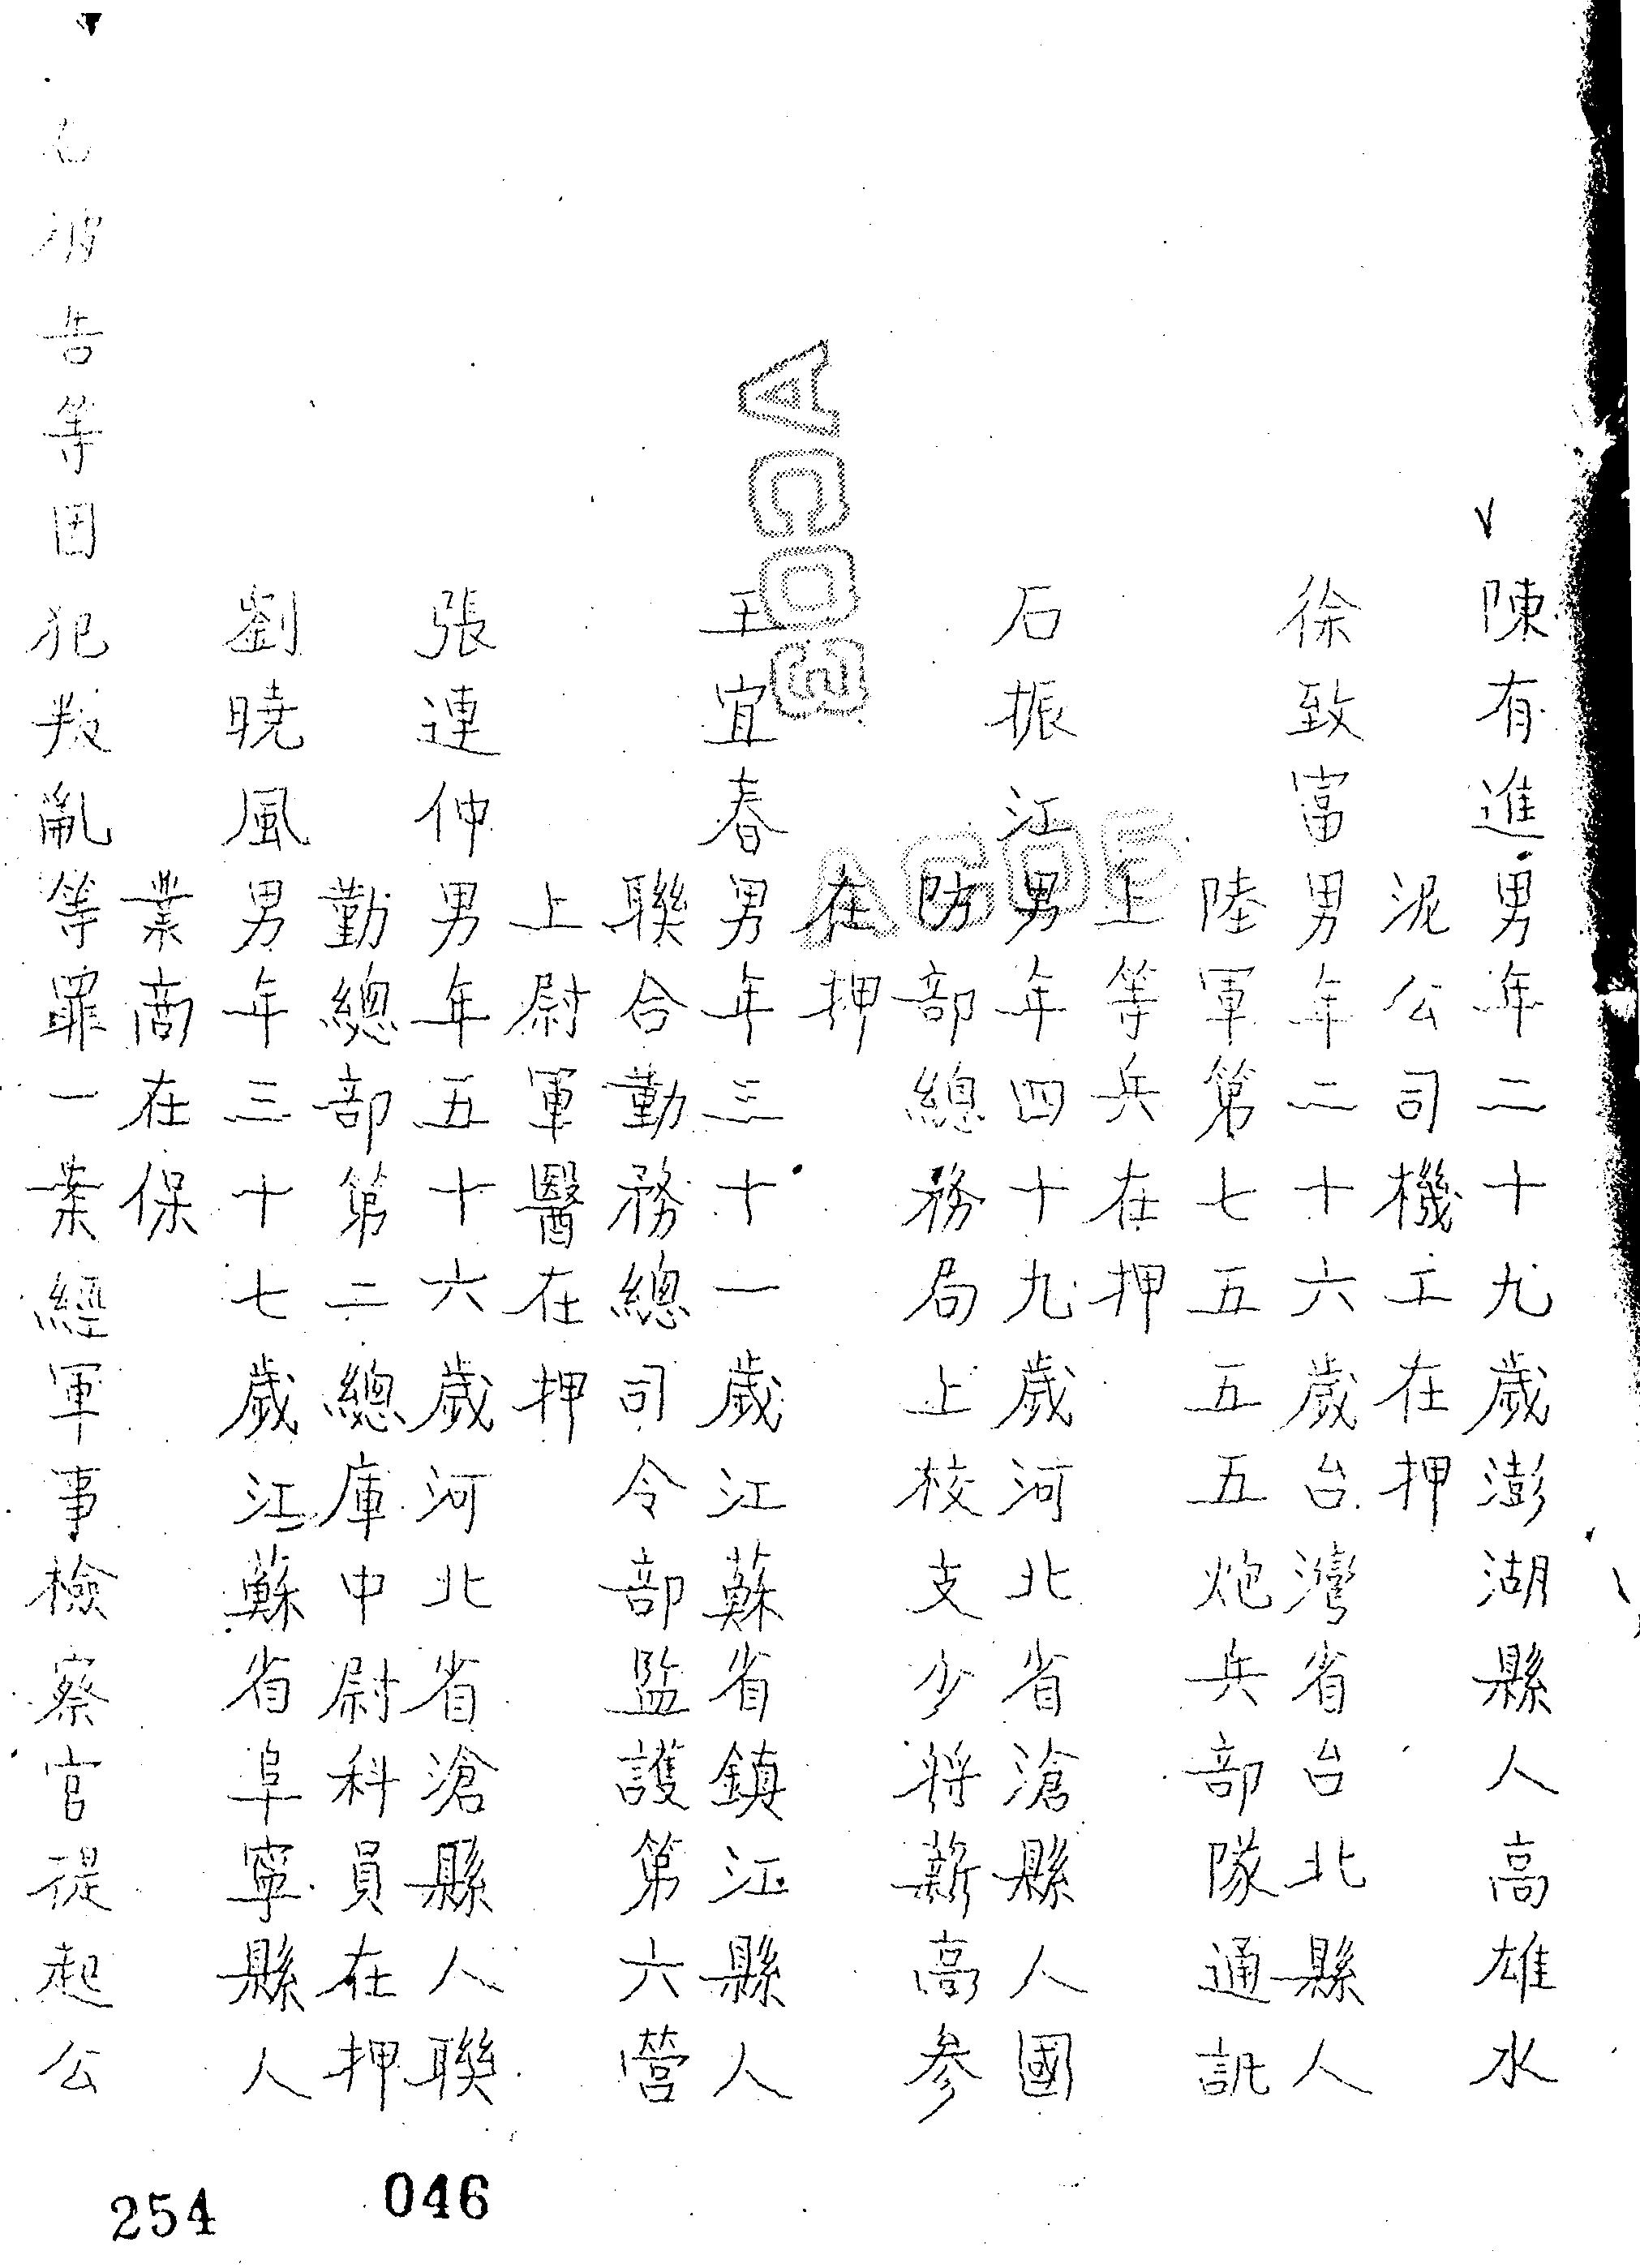 陳有進男年二十九歲澎湖縣人高雄水
泥公司機工在押
徐致富男年二十六歲台灣省台北縣人
陸軍第七五五五炮兵部隊通訊
上等兵在押
石振江男年四十九歲河北省滄縣人國
防部總務局上校支少將薪高參
在押
王宜春男年三十一歲江蘇省鎮江縣人
聯合勤務總司令部監護第六營
上尉軍醫在押
張連仲男年五十六歲河北省滄縣人聯
勤總部第二總庫中尉科員在押
劉曉風男年三十七歲江蘇省阜寧縣人
業商在保
被告等因犯叛亂等罪一案經軍事檢察官提起公
ACOE
ACOE
046
254